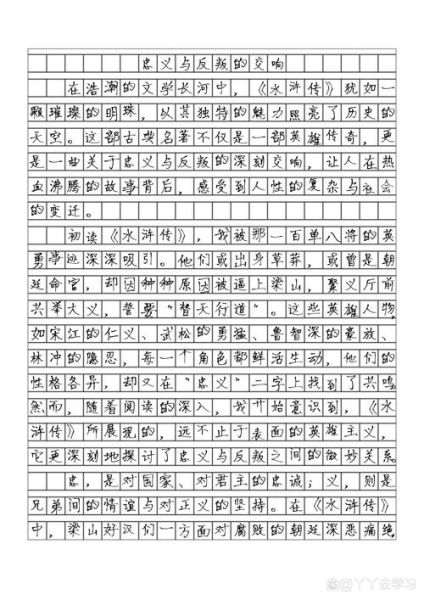 忠义与反叛的交响
在浩瀚的文学长河中，《水浒传》犹如一
颗璀璨的明珠，以其独特的魅力照亮了历史的
天空。这部古典名著不仅是一部英雄传奇，更
是一曲关于忠义与反叛的深刻交响，让人在热
血沸腾的故事背后，感受到人性的复杂与社会
的变迁。
初读《水浒传》，我被那一百单八将的英
勇事迹深深吸引。他们或出身草莽，或曾是朝
廷命官，却因种种原因被逼上梁山，聚义厅前
共举大义，誓要“替天行道”。这些英雄人物，
如宋江的仁义、武松的勇猛、鲁智深的豪放、
林冲的隐忍，每一个角色都鲜活生动，他们的
性格各异，却又在“忠义”二字上找到了共鸣。
然而，随着阅读的深入，我开始意识到，《水
浒传》所展现的，远不止于表面的英雄主义，
它更深刻地探讨了忠义与反叛之间的微妙关系。
忠，是对国家、对君主的忠诚；义，则是
兄弟间的情谊与对正义的坚持。在《水浒传》
中，梁山好汉们一方面对腐败的朝廷深恶痛绝，
@丫丫去学习